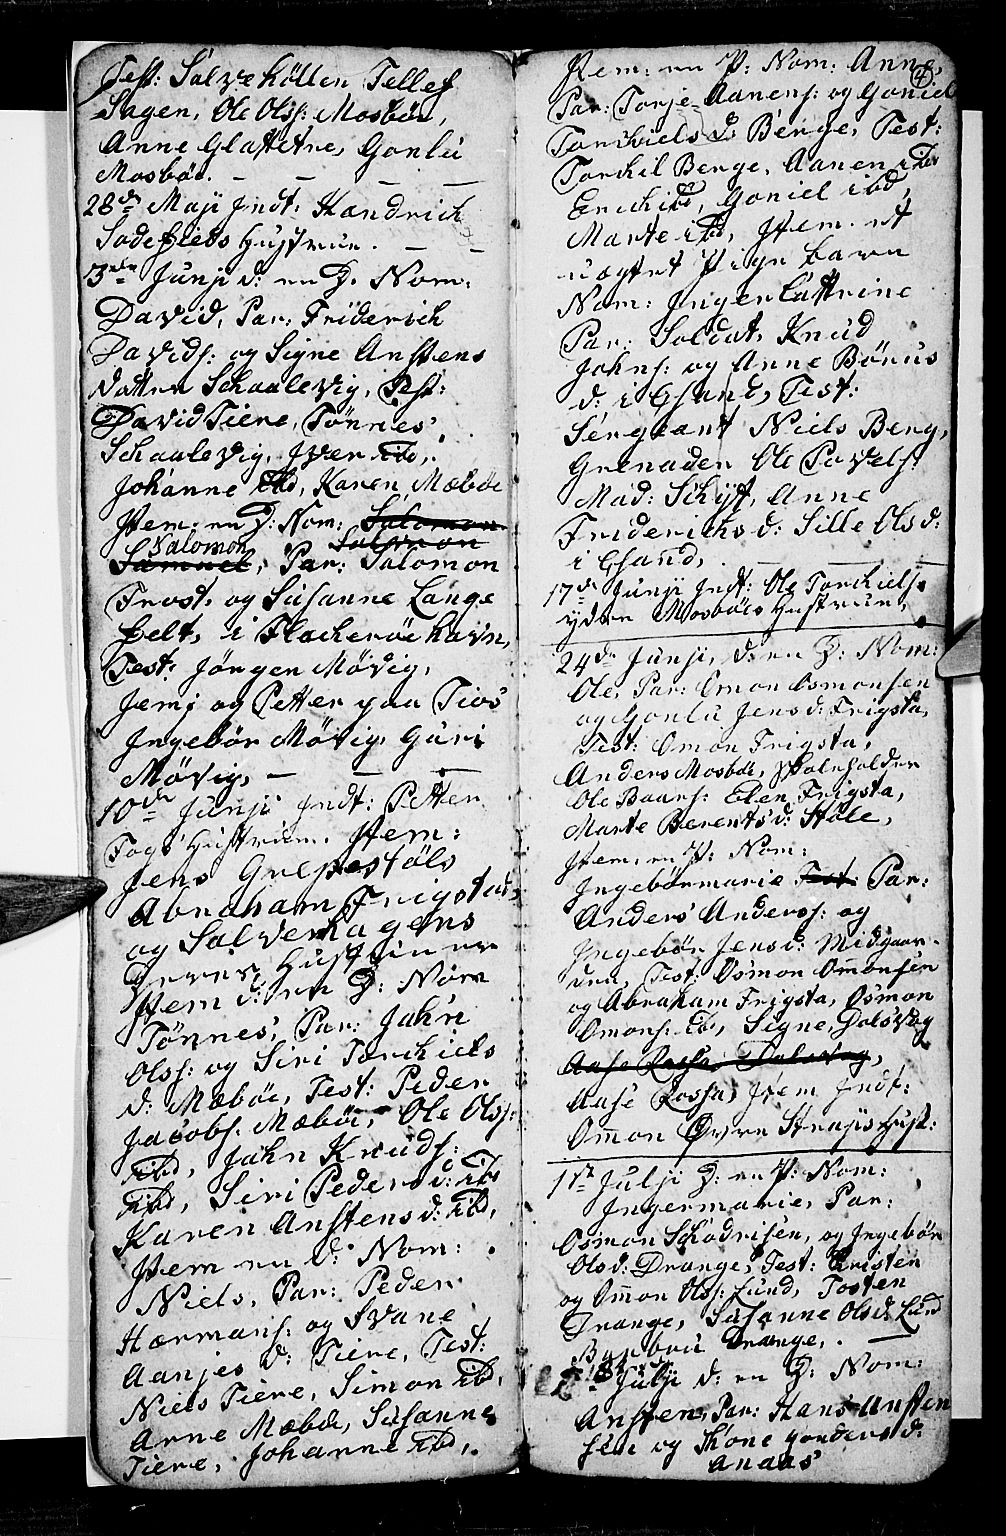 Test: Salve Hölten Tellef
Hagen, Ole Olss: Mosböe,
Anne Glattetre, Gonlu
Mosböe. — — — —
28de Maji Indt. Hendrich
Hustrue. — —
3die Junji d: en D. Nom:
David, Par: Friderich
Davids: og Signe Anstens
datter Schaalevig, Test:
David Tiere, Tönnes
Schaalevig, Iver ibd,
Johanne ibd, Karen Mæböe
Item: en D: Nom: Salomon
Salomon Salomon
Samuel, Par: Salomon
Trost, og Susanne Lange
felt, i Flecheröe havn,
Test: Jörgen Mövig,
Jemj og Petter paa Tios
Ingebör Mövig, Guri
Mövig, — — —
10de Junji Indt: Petter
Fogs Hustrue. Item:
Jens Grepestöls
Abraham Frigstads
og Salve Hagens
Hustruer
Item d: en D: Nom
Tönnes, Par: Jahn
Olss: og Siri Torchiels
d: Mæböe, Test: Peder
Jacobs: Mæböe, Ole Olss:
ibd, Jahn Knuds:
ibd, Siri Peders d: ibd
Karen Anstens d: ibd,
Item en D: Nom:
Niels, Par: Peder
Hermans: og Svane
Aanjes d: Tiere, Test:
Niels Tiere, Simon ibd,
Arne Mæböe, Susanne
Tiere, Johanne ibd,
4
Item: en P: Nom: Anne,
Par: Torje Aanens: og Goniel
Torchiels d: Berge, Test:
Torchil Berge, Aanen ibd
Erich ibd, Goniel ibd,
Marte ibd, Item et
uægtet Pige barn
Nom: Inger Cattrine
Par: Soldat, Knud
Johns: og Anne Börus
d: i Gsund, Test:
Sergeant Niels Berg,
Grenader Ole Povels:
Mad: Schÿt, Anne
Friderichs d: Sille Ols d:
i Gsund, — —
17de Junji Indt: Ole Torchiels:
ydere Mosböes Hustrue,
24de Junji, d: en D: Nom:
Ole, Par: Omon Osmonsen
og Gonlu Jens d: Frigsta,
Test: Omon Frigsta,
Anders Mosböe,
Ole Baars: Elen Frigsta,
Marte Berents d: Stöle,
Item: en P: Nom:
Ingebörmarie Test: Par:
Anders Anderss: og
Ingebör Jens d: Midgaar-
den, Test: Osmon Omonsen
og Abraham Frigsta, Osmon
Omons: ibd, Signe, Dalsvog
Aase Rossa, Dalsvog,
Aase Rossa, Item Indt:
Omon Övre Strays Hust:
1te Julji D: en P: Nom:
Ingermarie, Par:
Osmon Schodrisen, og Ingebör
Ols d: Drange, Test: Christen
og Omon Olss: Lund, Tosten
Drange, Susanne Ols d: Lund
Barbru Drange, —
8de Julji d: en D: Nom:
Ansten, Par: Hans Ansten
sen og Thone Gonders d:
Anaas